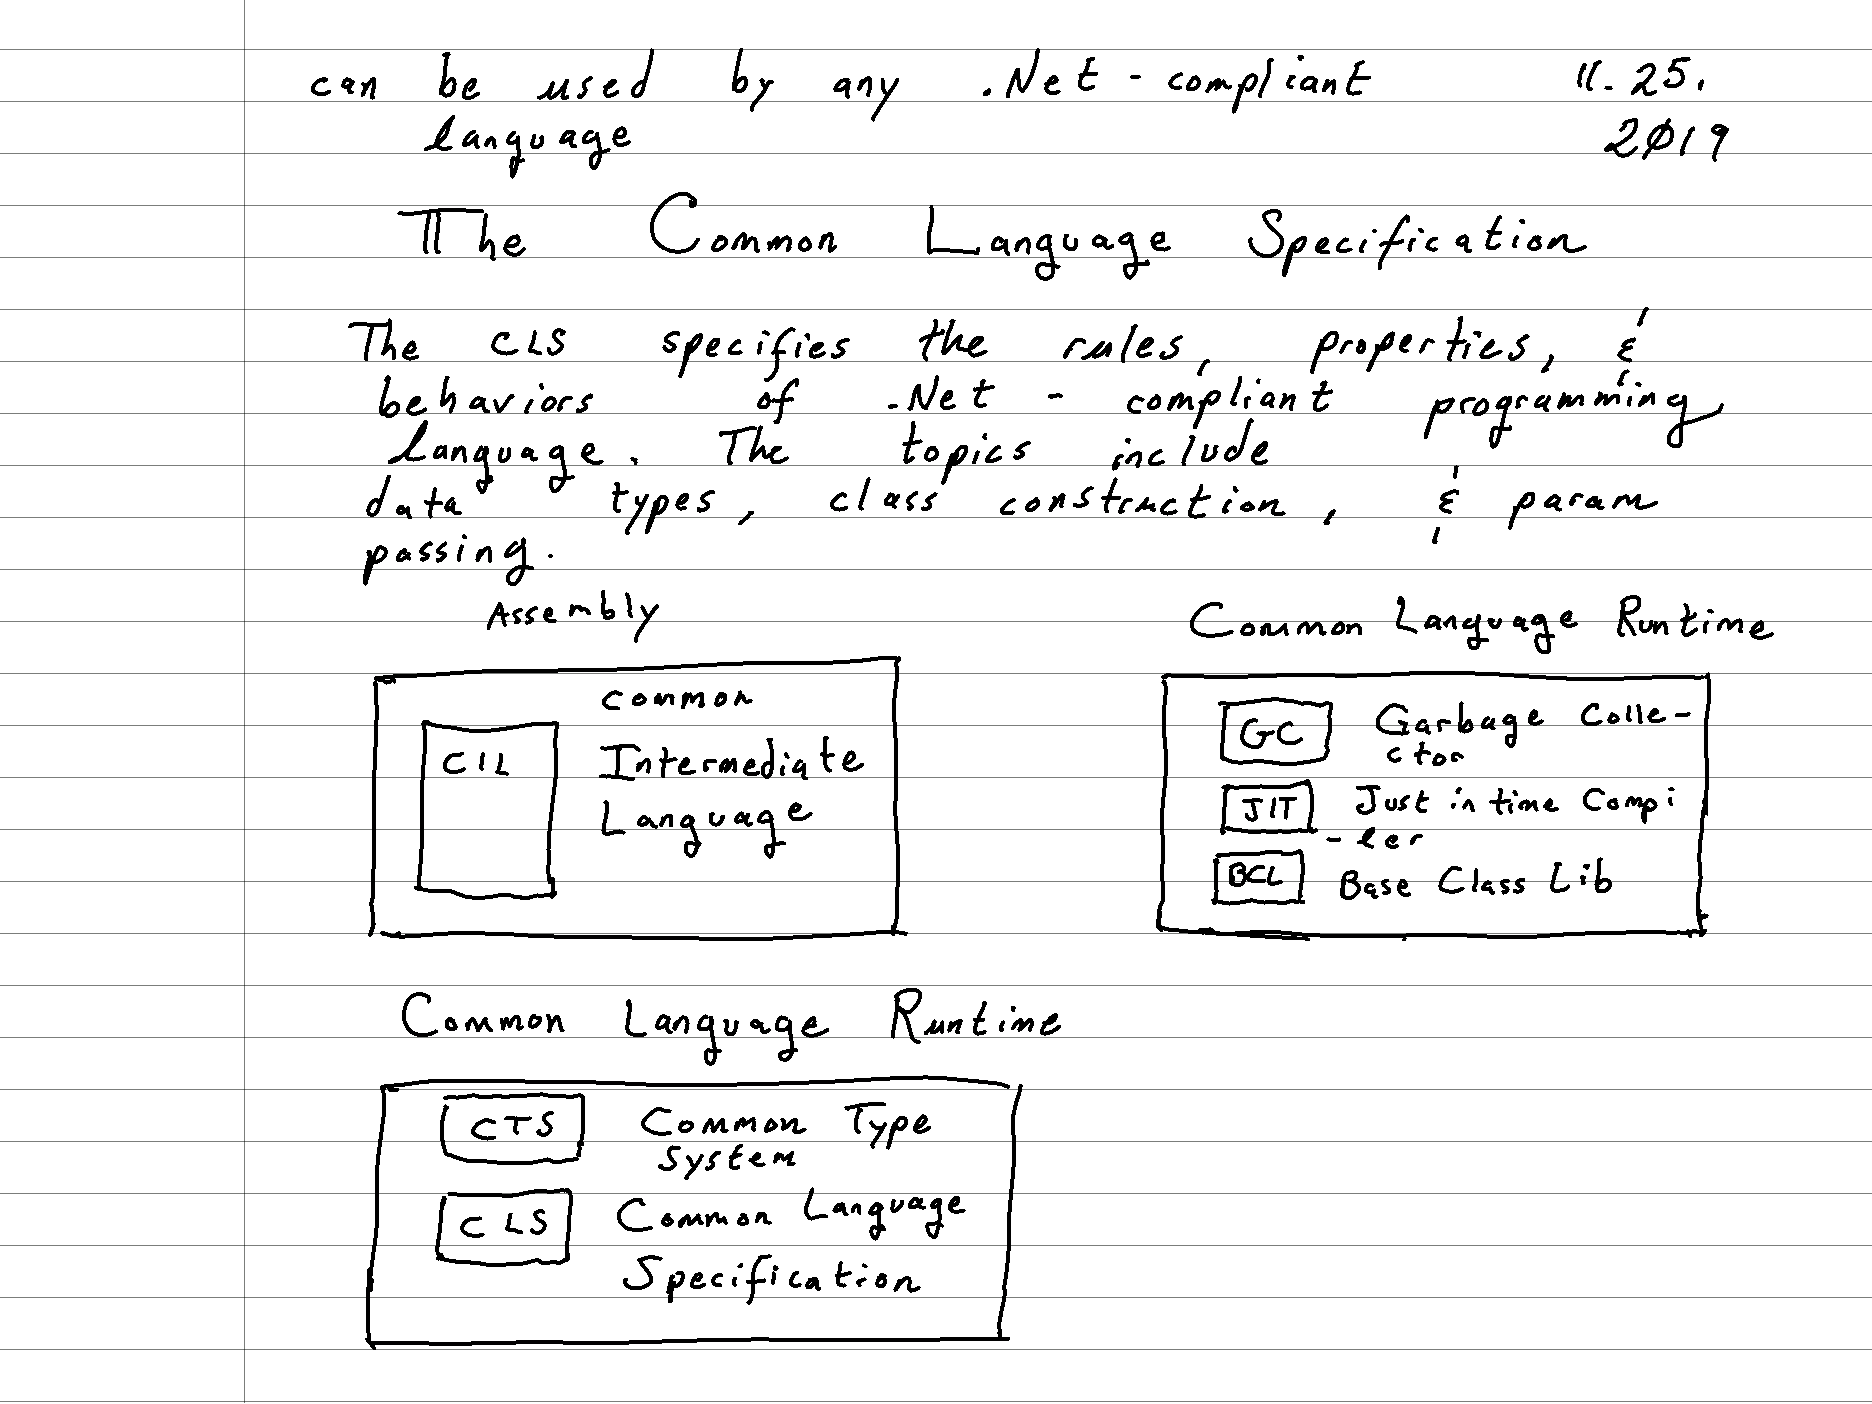 can be used by any .Net-compliant 11.25.
language 2019
The Common Language Specification
The CLS specifies the rules, properties, &
behaviors of .Net-compliant programming
language. The topics include
data types, class construction, & param
passing.
Assembly
common
CIL Intermediate
Language
Common Language Runtime
GC Garbage Colle-
ctor
JIT Just in time Compi
-ler
BCL Base Class Lib
Common Language Runtime
CTS Common Type
System
CLS Common Language
Specification